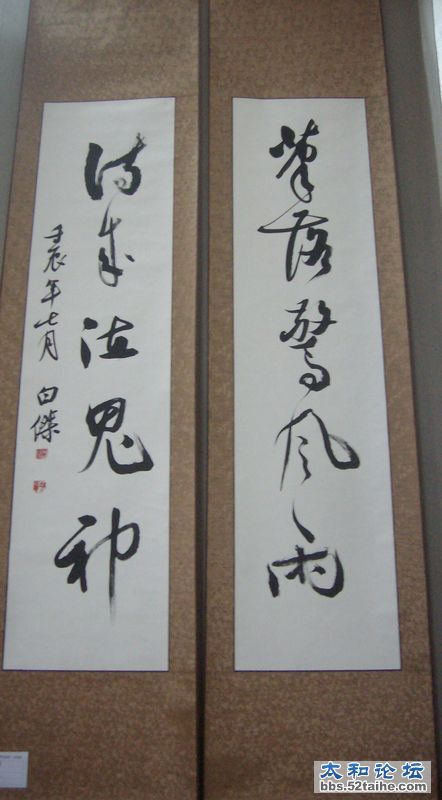 筆落驚風雨
詩成泣鬼神
壬辰年七月 白傑
太和论坛
bbs.52taihe.com